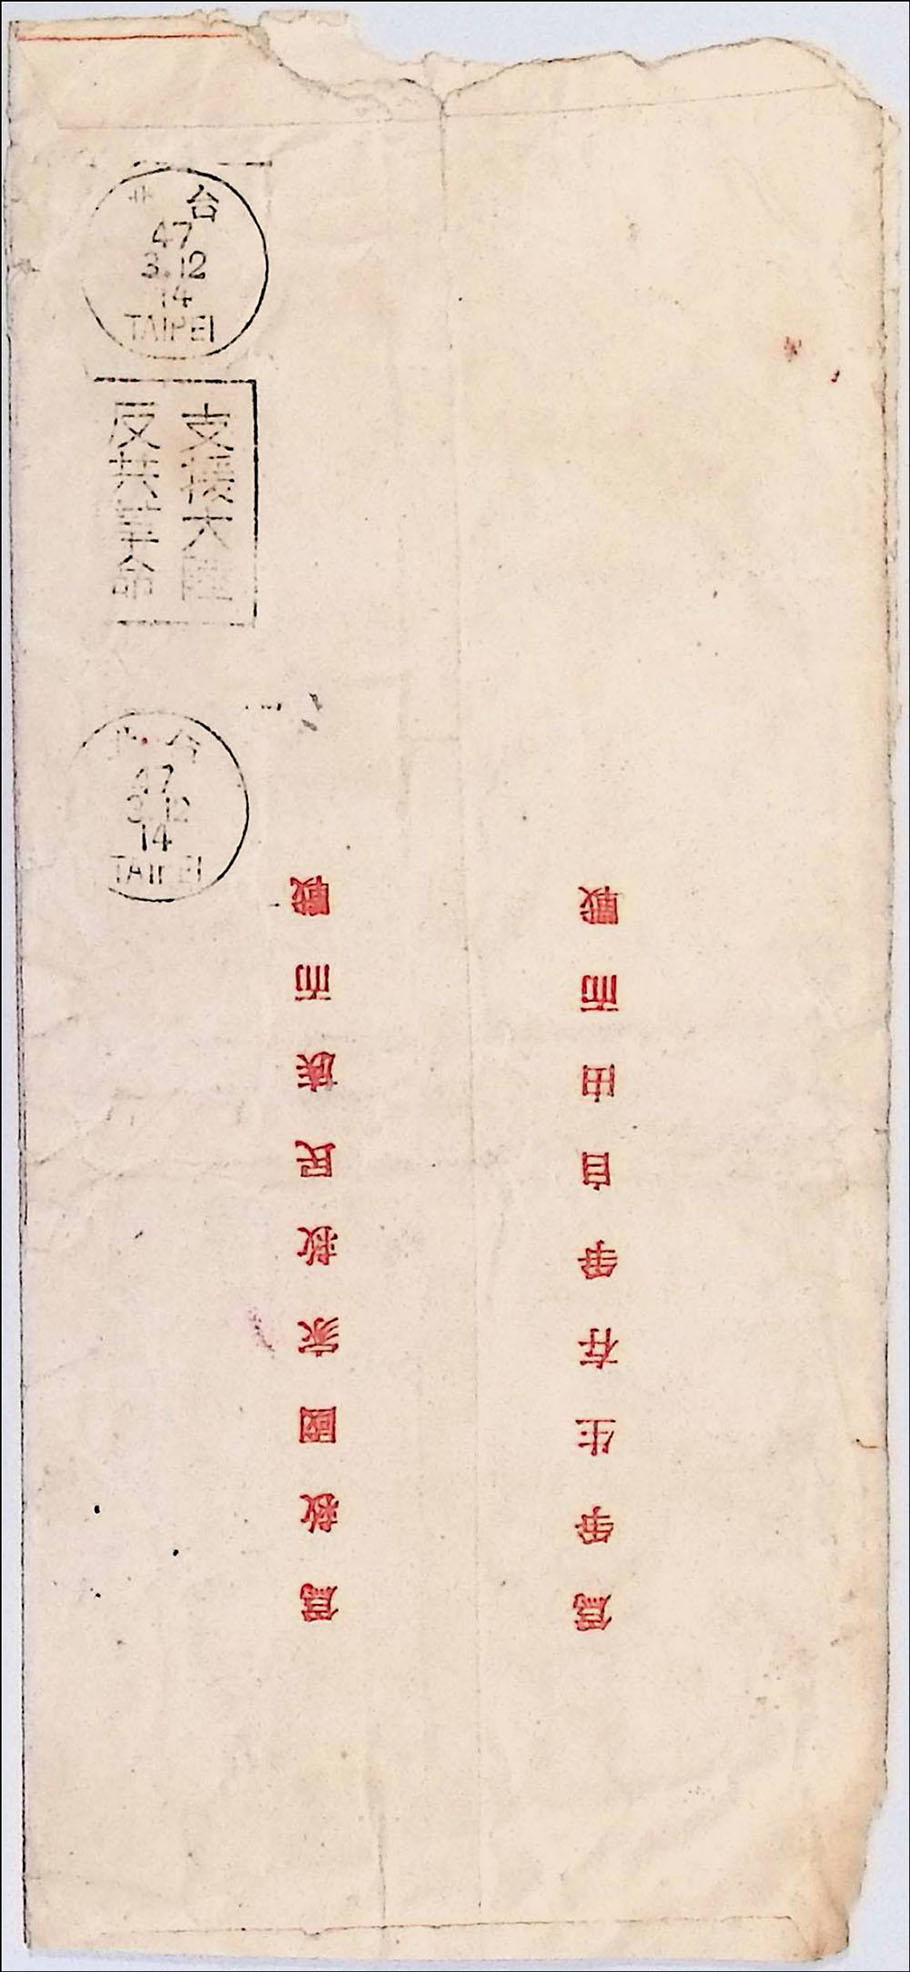 台北
47
3.12
14
TAIPEI
支援大陸
反共革命
台北
47
3.12
14
TAIPEI
為爭生存爭自由而戰
為救國家救民族而戰